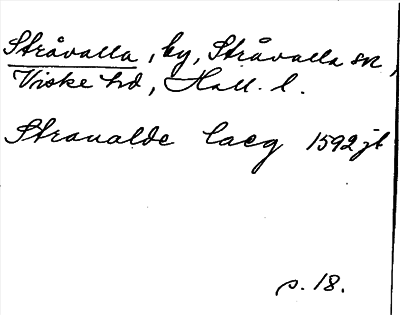 Stråvalla, by, Stråvalla sn,
Viske hd, Hall. l.
Stroualde laeg 1592 jb
s. 18.